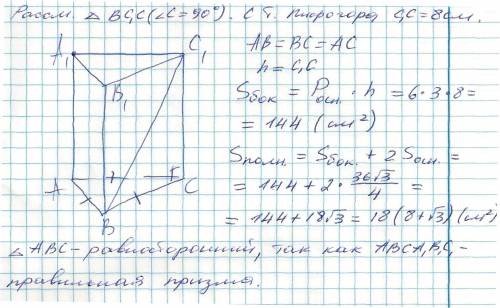 Рассм. △ BC₁C (∠C = 90°). С т. Пифагора C₁C = 8 см.
A₁
C₁
B₁
A
C
B
AB = BC = AC
h = C₁C
Sбок = Pосн. · h = 6 · 3 · 8 =
= 144 (см²)
Sполн. = Sбок. + 2 Sосн. =
= 144 + 2 · 36√3/4 =
= 144 + 18√3 = 18(8 + √3) (см²)
△ ABC - равносторонний, так как ABCA₁B₁C₁ -
правильная призма.